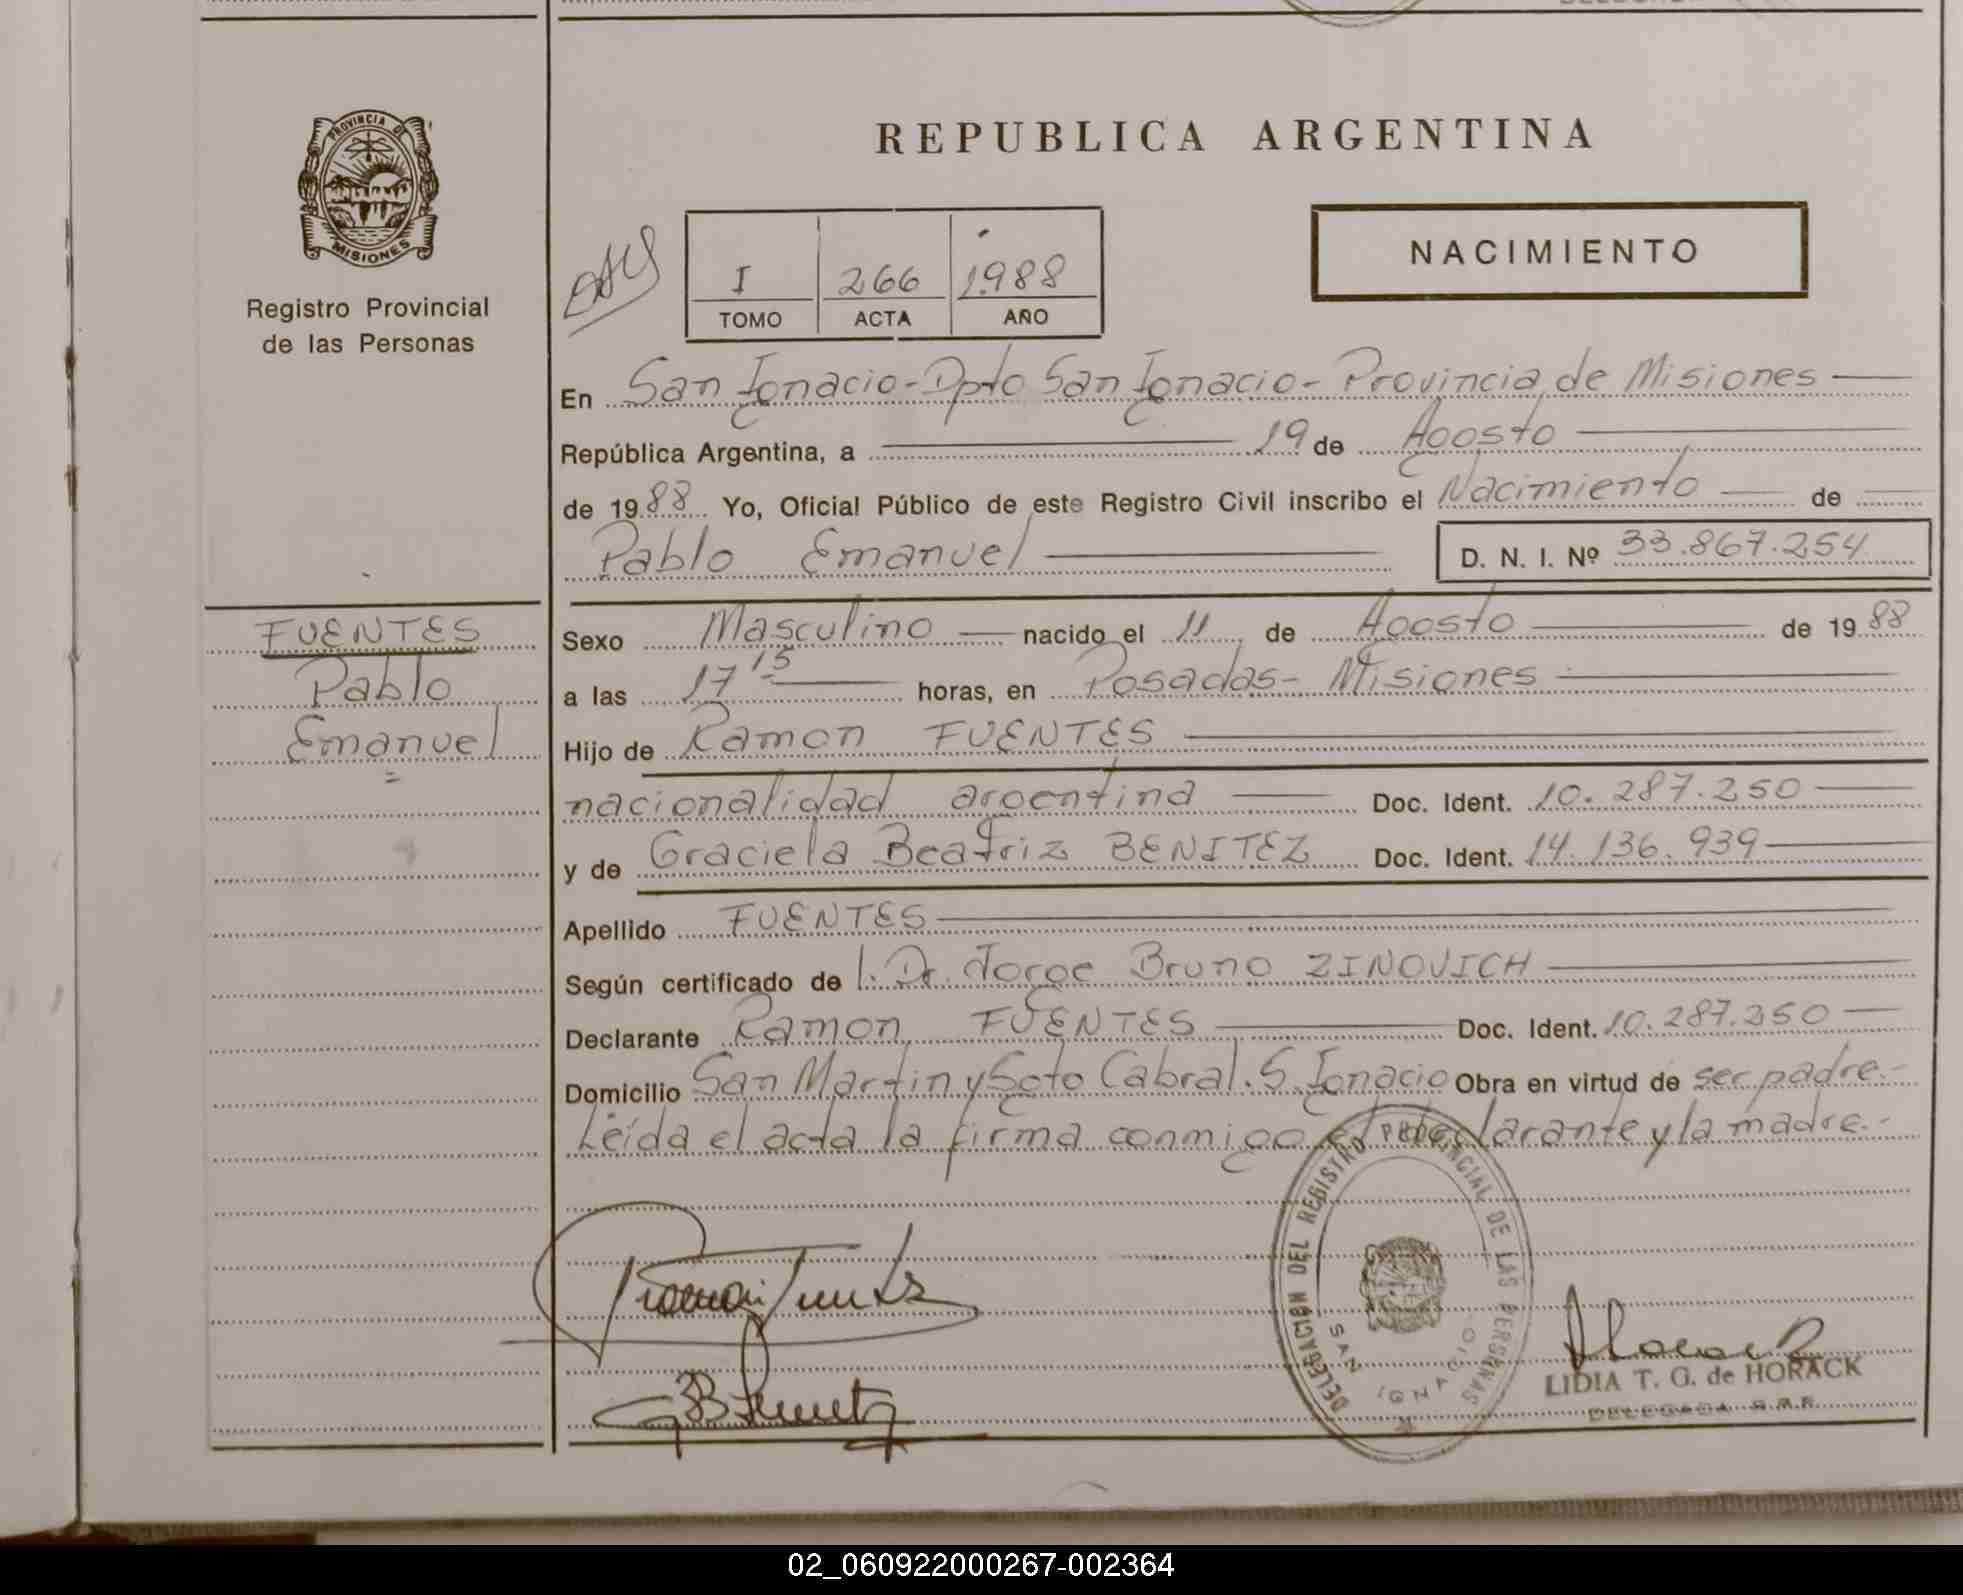 PROVINCIA DE
MISIONES
Registro Provincial
de las Personas
REPUBLICA ARGENTINA
I 266 1.988
TOMO ACTA AÑO
NACIMIENTO
En San Ignacio - Dpto San Ignacio - Provincia de Misiones
República Argentina, a 19 de Agosto
de 19 88 Yo, Oficial Público de este Registro Civil inscribo el Nacimiento de
Pablo Emanuel D. N. I. Nº 33.867.254
FUENTES
Pablo
Emanuel
Sexo Masculino nacido el 11 de Agosto de 19 88
a las 17 15 horas, en Posadas - Misiones
Hijo de Ramon FUENTES
nacionalidad argentina Doc. Ident. 10.287.250
y de Graciela Beatriz BENITEZ Doc. Ident. 14.136.939
Apellido FUENTES
Según certificado de l. Dr. Jorge Bruno ZINOVICH
Declarante Ramon FUENTES Doc. Ident. 10.287.250
Domicilio San Martin y Soto Cabral. S. Ignacio Obra en virtud de ser padre.-
Leída el acta la firma conmigo el declarante y la madre.-
DELEGACION DEL REGISTRO PROVINCIAL DE LAS PERSONAS
SAN IGNACIO
LIDIA T. G. de HORACK
DELEGADA R.P.P.
02_060922000267-002364